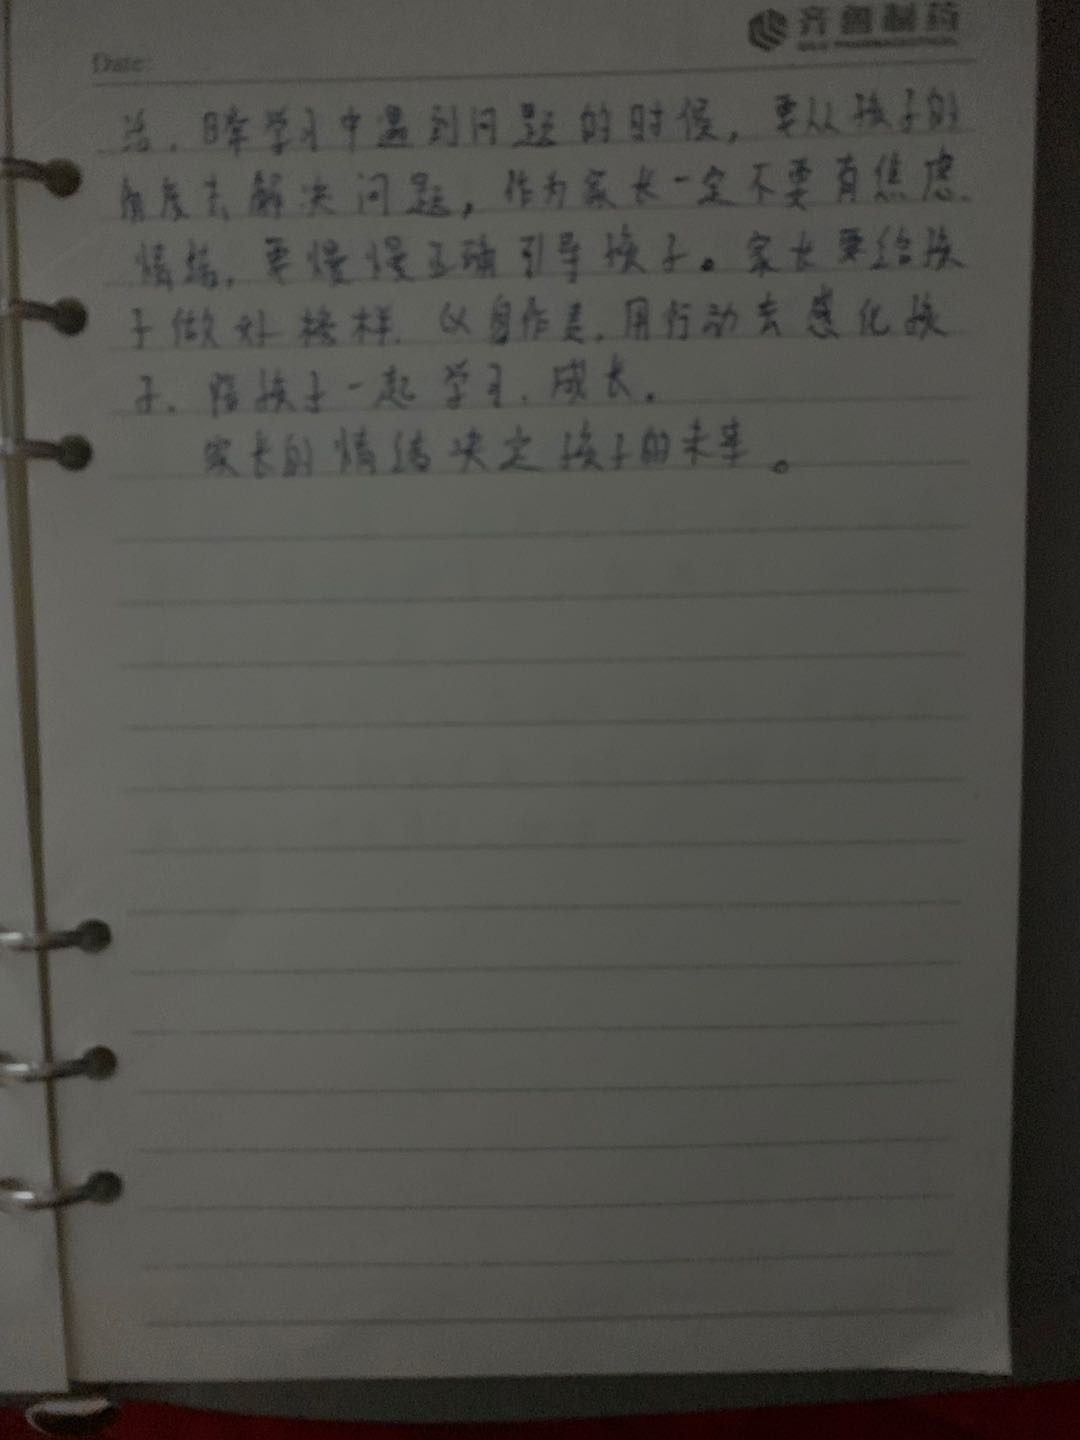 齐鲁制药
QILU PHARMACEUTICAL
Date:
活、日常学习中遇到问题的时候,要从孩子的
角度去解决问题,作为家长一定不要有焦虑、
情绪,要慢慢正确引导孩子。家长要给孩
子做好榜样、以身作责、用行动去感化孩
子、陪孩子一起学习、成长。
家长的情绪决定孩子的未来。